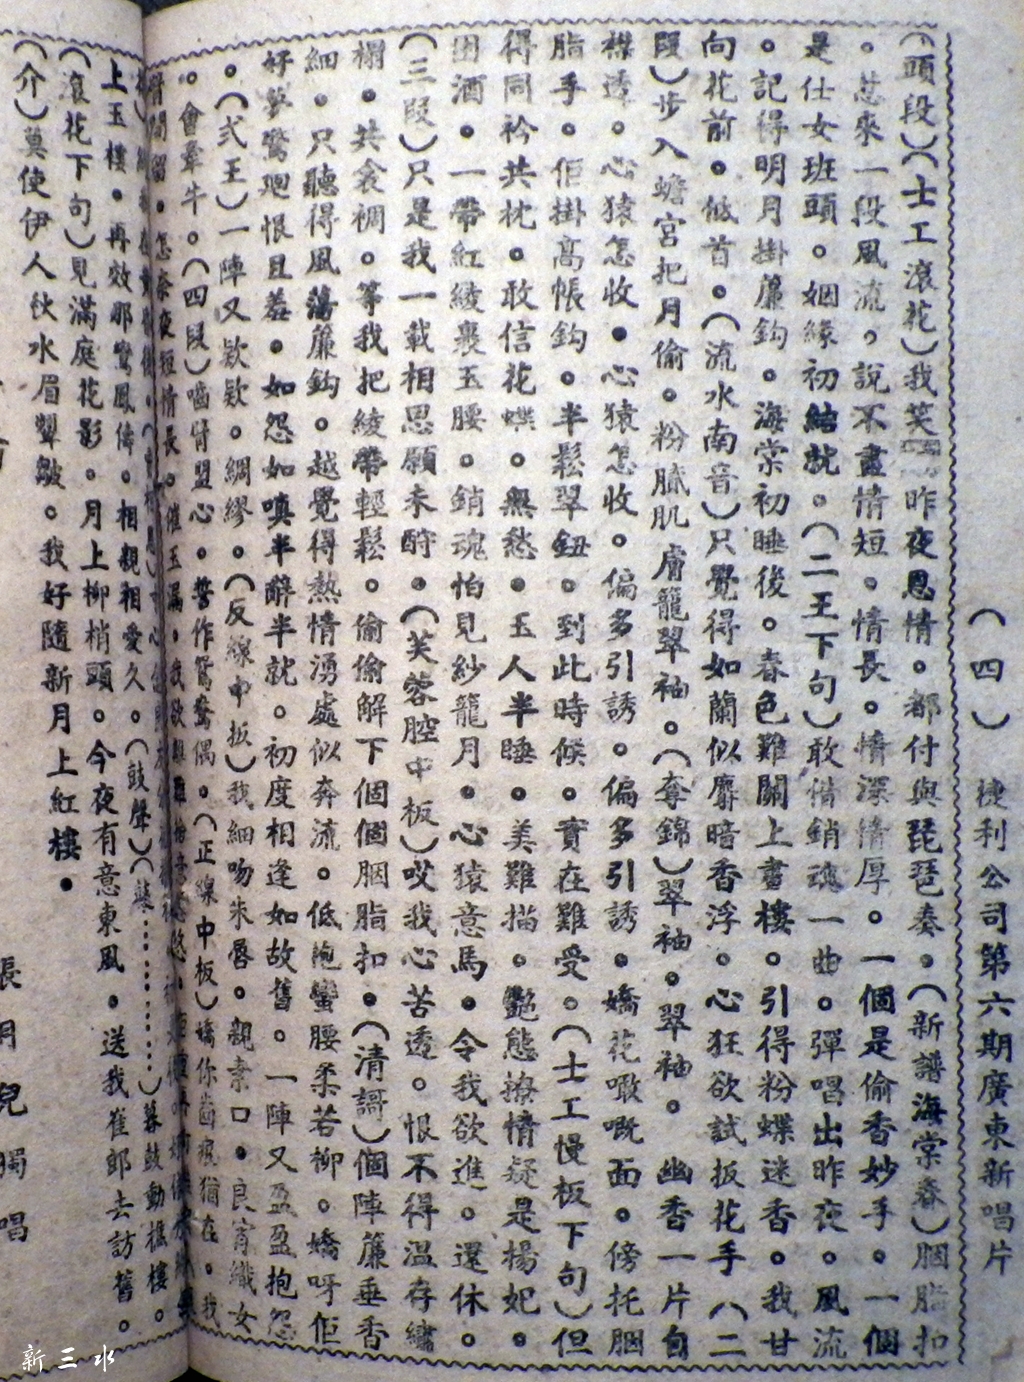 （四）　捷利公司第六期廣東新唱片
（頭段）（士工滾花）我笑昨夜恩情。都付與琵琶奏。（新譜海棠春）胭脂扣
。惹來一段風流。說不盡情短。情長。情深情厚。一個是偷香妙手。一個
是仕女班頭。姻緣初結就。（二王下句）敢惜銷魂一曲。彈唱出昨夜。風流
。記得明月掛簾鈎。海棠初睡後。春色難關上畫樓。引得粉蝶迷香。我甘
向花前。低首。（流水南音）只覺得如蘭似麝暗香浮。心狂欲試扳花手（二
段）步入蟾宮把月偷。粉膩肌膚籠翠袖。（奪錦）翠袖。翠袖。幽香一片自
襟透。心猿怎收。心猿怎收。偏多引誘。偏多引誘。嬌花嘅嘅面。傍托胭
脂手。佢掛高帳鈎。半鬆翠鈕。到此時候。實在難受。（士工慢板下句）但
得同衿共枕。敢信花蝶。無愁。玉人半睡。美難描。艷態撩情疑是楊妃。
困酒。一帶紅綾裹玉腰。銷魂怕見紗籠月。心猿意馬。令我欲進。還休。
（三段）只是我一載相思願未酧。（芙蓉腔中板）哎我心苦透。恨不得温存繡
榻。共衾裯。等我把綾帶輕鬆。偷偷解下個個胭脂扣。（清謌）個陣簾垂香
細。只聽得風蕩簾鈎。越覺得熱情湧處似奔流。低抱蠻腰柔若柳。嬌呀佢
好夢驚廻恨且羞。如怨如嗔半辭半就。初度相逢如故舊。一陣又盈盈抱怨
。（弍王）一陣又欵欵。綢繆。（反線中板）我細吻朱唇。親素口。良宵織女
。會牽牛。（四段）嚙臂盟心。誓作鴛鴦偶。（正線中板）嬌你齒痕猶在。我
怎奈夜短情長。催玉漏。我欲
（鼓聲）（ ………）暮鼓動樵樓。
上玉樓。再效那鸞鳳儔。相親相愛久。
（滾花下句）見滿庭花影。月上柳梢頭。今夜有意東風。送我崔郎去訪舊。
（介）莫使伊人秋水眉顰皺。我好隨新月上紅樓。
張月兒獨唱
新三水